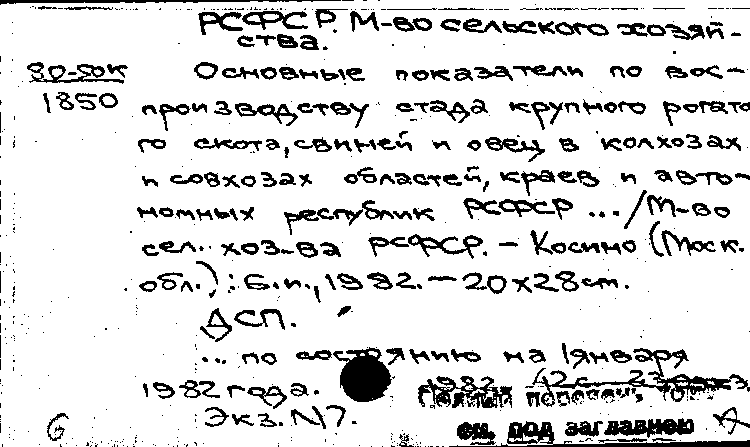 РСФСР. М-во сельского хозяй-
ства.
80-50к
1850
Основные показатели по вос-
производству стада крупного рогато
го скота, свиней и овец в колхозах
и совхозах областей, краев и авто-
номных республик РСФСР .../М-во
сел. хоз-ва РСФСР. – Косино (Моск.
обл.) : Б.и., 1982. – 20х28см.
ДСП.
... по состоянию на 1января
1982 года.
1982. 42с. 23
Полный перечень
Экз. N7.
см. под заглавною
6